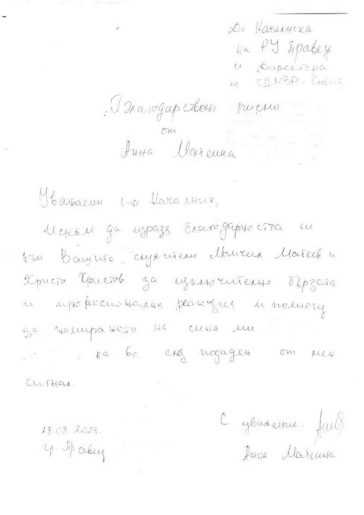 До Началника
на РУ Правец
и Директора
на СДМВР - София
Благодарствено писмо
от
Анна Матеина
Уважаеми г-н Началник,
Искам да изразя благодарността си
към Вашите служители Момчил Матеев и
Христо Христов за изключително бързата
и професионална реакция и помощ
за намирането на сина ми
на 6г след подаден от мен
сигнал.
18.08.2023г. С уважение:
гр. Правец Анна Матеина